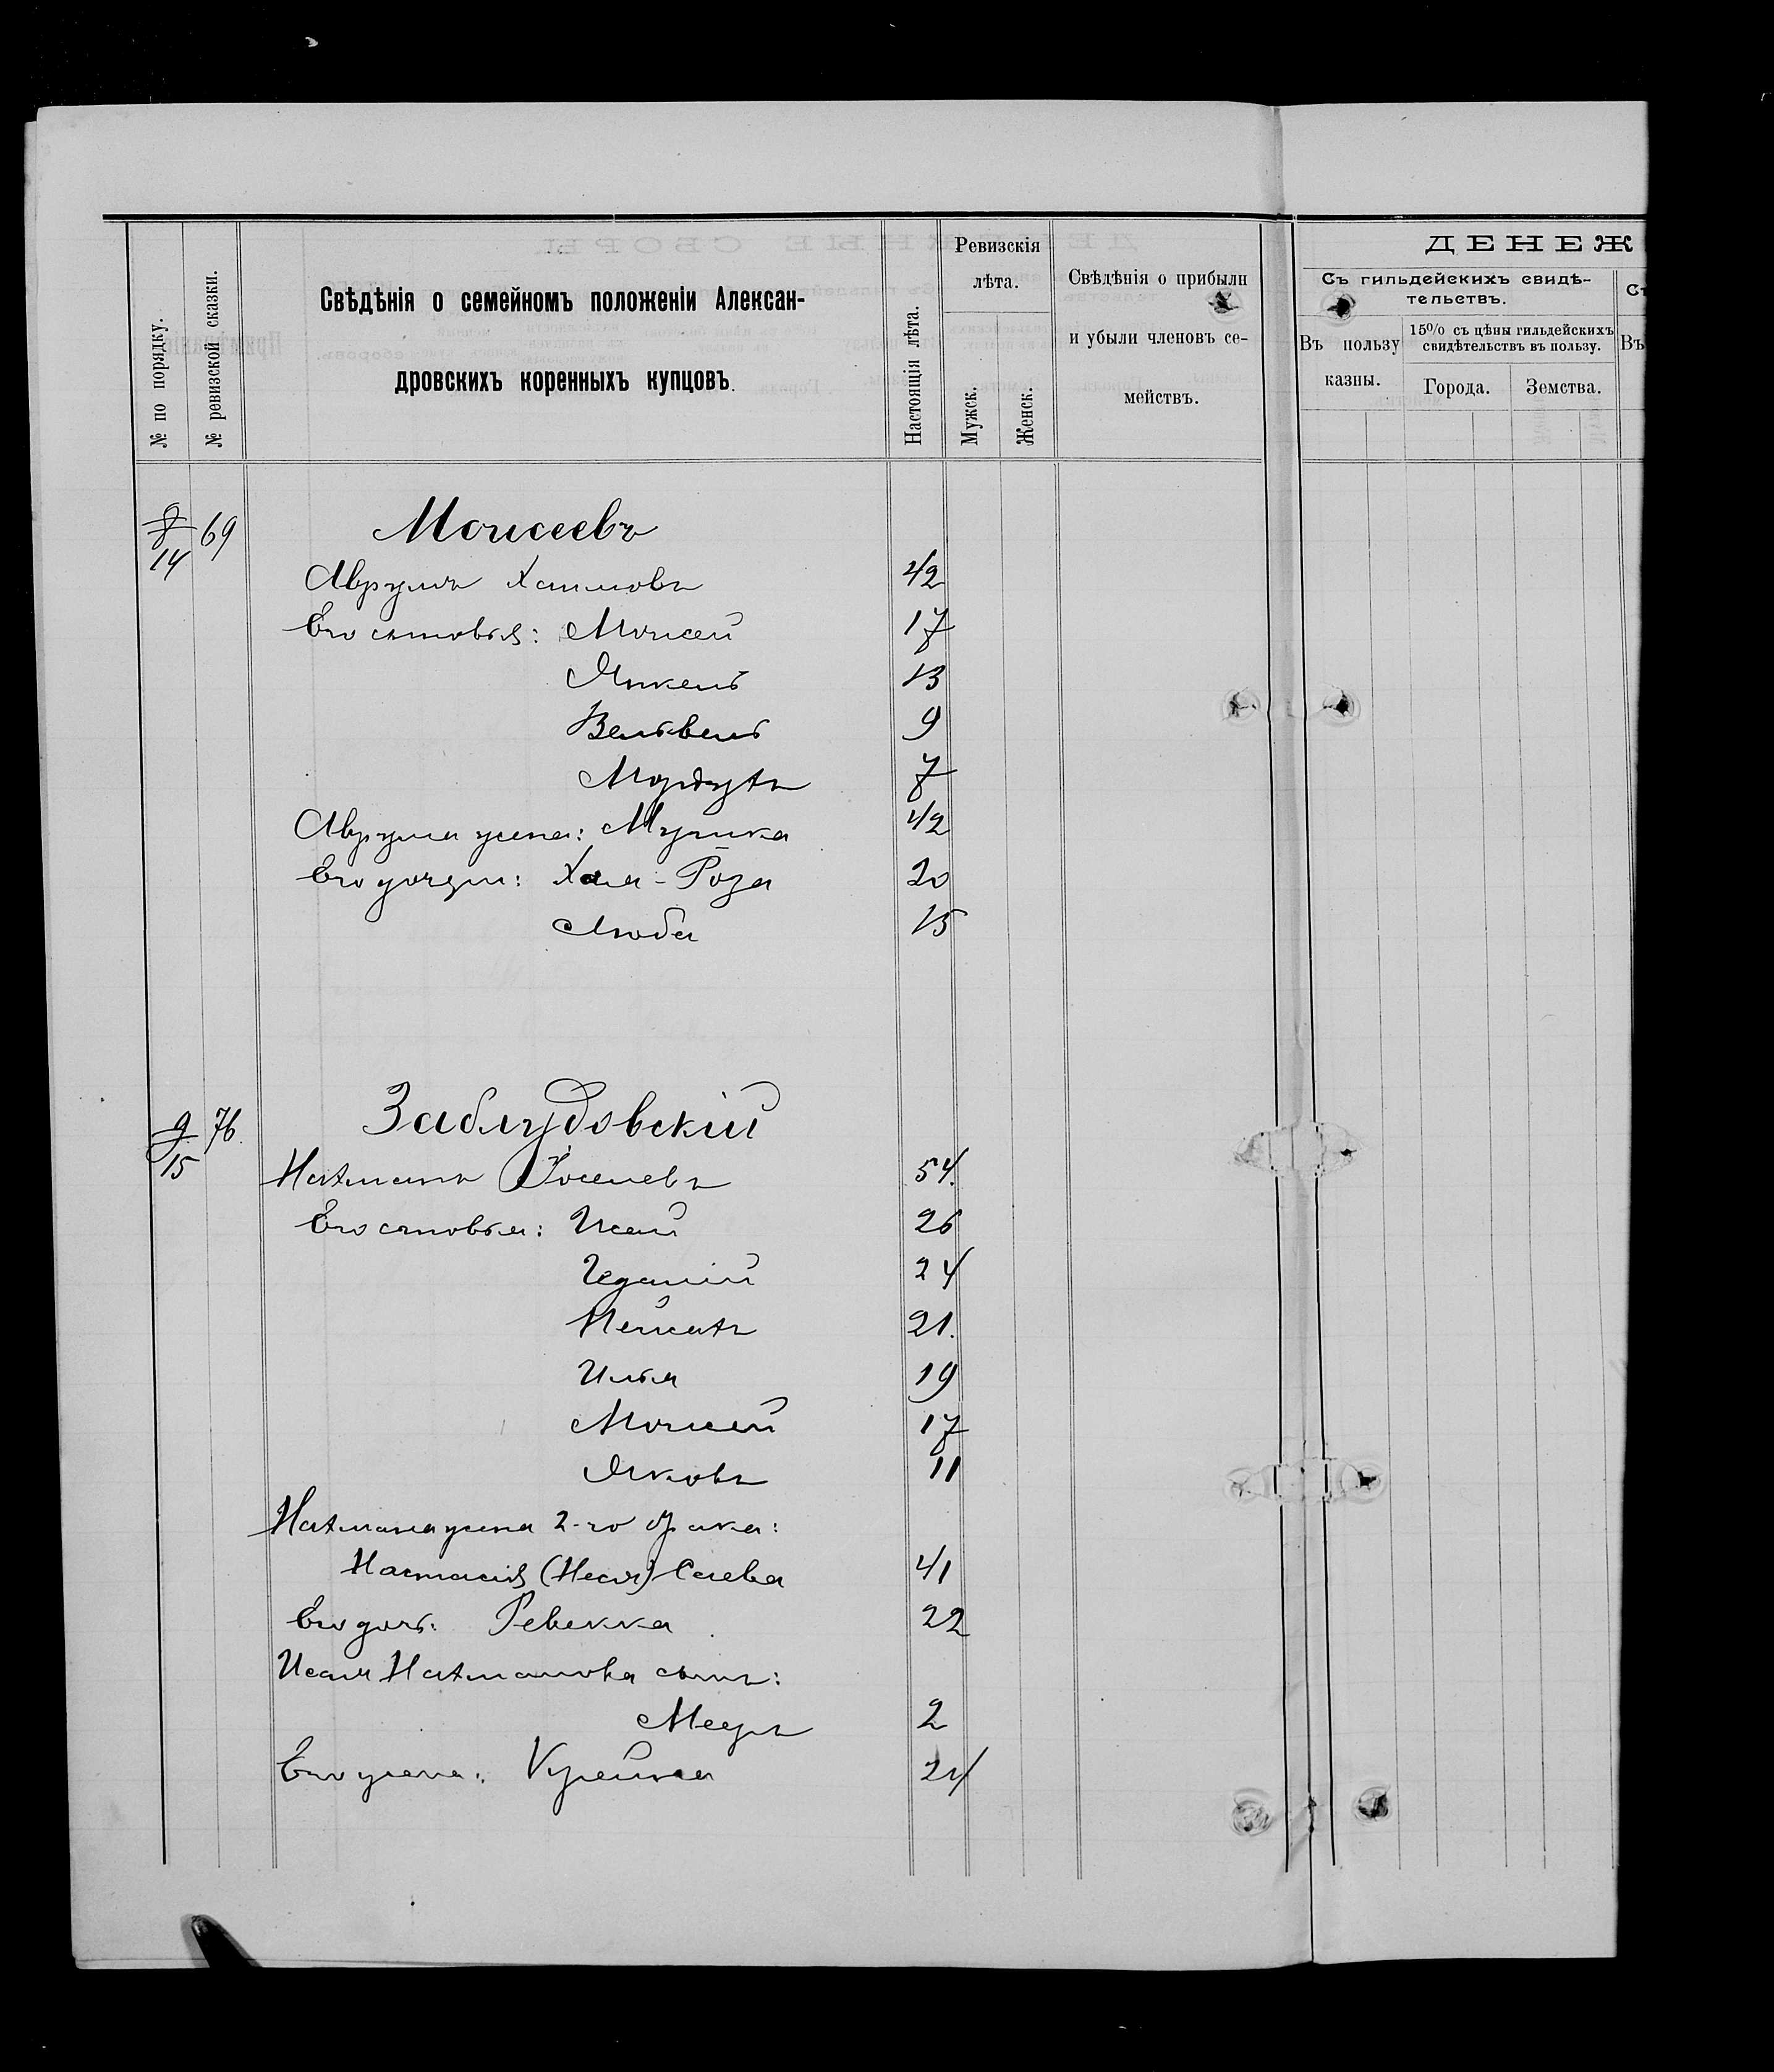 № по порядку.
№ ревизской сказки.
Свѣдѣнія о семейномъ положеніи Алексан-
дровскихъ коренныхъ купцовъ.
Настоящія лѣта.
Ревизскія
лѣта.
Мужск.
Женск.
Свѣдѣнія о прибыли
и убыли членовъ се-
мействъ.
ДЕНЕЖ
Съ гильдейскихъ свидѣ-
тельствъ.
Въ пользу
казны.
15% съ цѣны гильдейскихъ
свидѣтельствъ въ пользу.
Города.
Земства.
Въ
8/14 69 Моисеевъ
Аврумъ Хаимовъ 42
Его сыновья: Моисей 17
Янкель 13
Вельвель 9
Мордухъ 7
Аврума жена: 42
Его дочери: Хая-Роза 20
Люба 15
9/15 76. Заблудовскій
Нахманъ Іоселевъ 54.
Его сыновья: Исай 26
Гедалій 24
21.
Илья 19
Моисей 17
Яковъ 11
Нахмана жена 2-го брака:
Настасія (Неся) 41
Его дочь: Ревекка 22
Исая Нахманова сынъ:
Мееръ 2
Его жена: Крейна 24